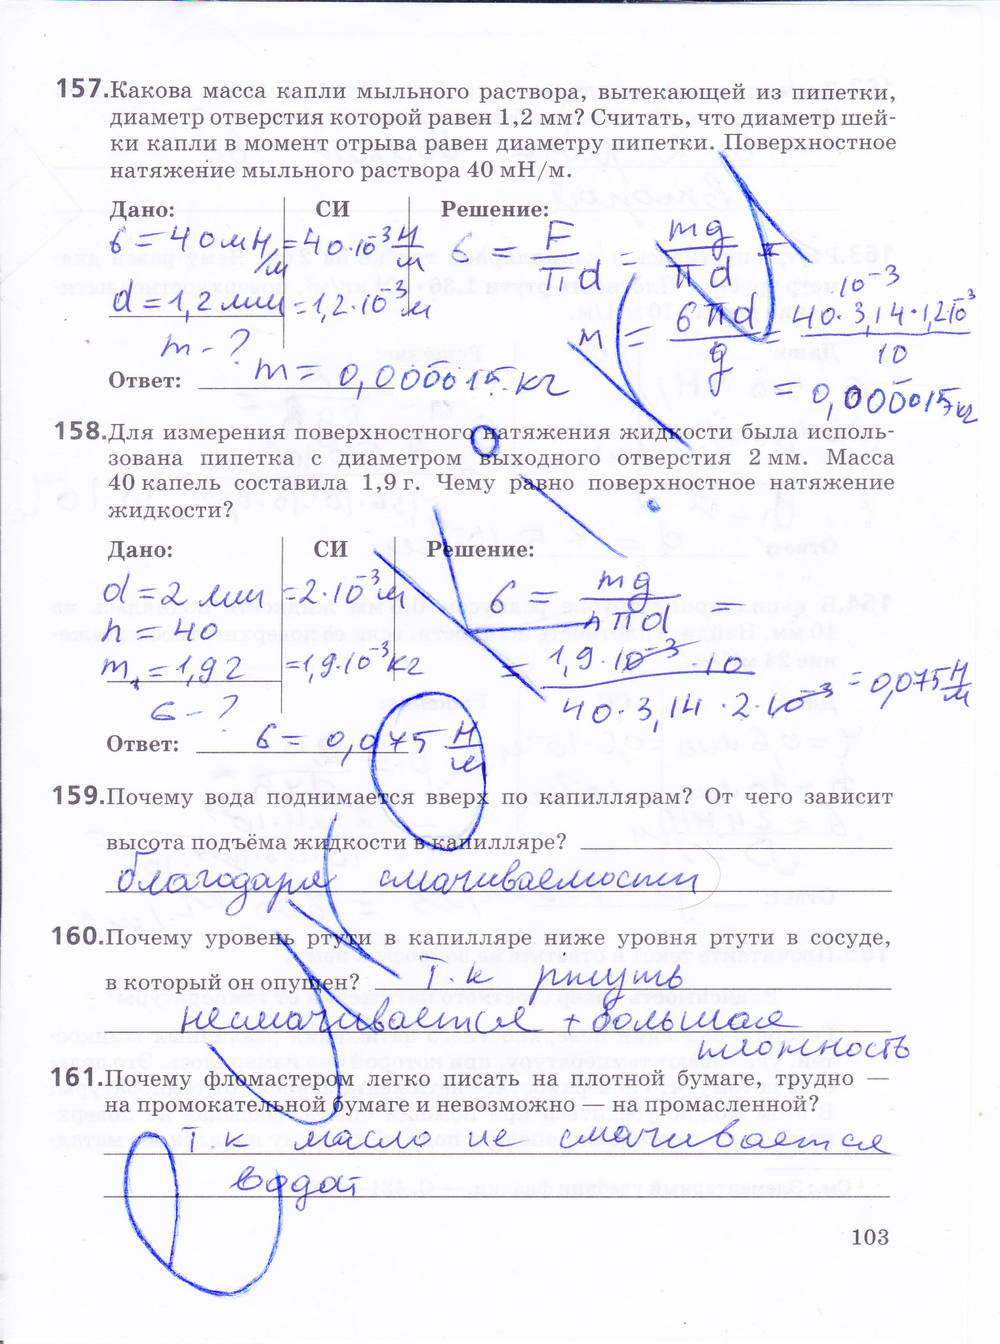 157. Какова масса капли мыльного раствора, вытекающей из пипетки,
диаметр отверстия которой равен 1,2 мм? Считать, что диаметр шей-
ки капли в момент отрыва равен диаметру пипетки. Поверхностное
натяжение мыльного раствора 40 мН/м.
Дано: СИ Решение:
б = 40 мН/м = 40·10⁻³ Н/м б = F/πd = mg/πd =
d = 1,2 мм = 1,2·10⁻³ м m = бπd/g = 40·10⁻³·3,14·1,2·10⁻³/10
m - ?
= 0,000015 кг
Ответ: m = 0,000015 кг
158. Для измерения поверхностного натяжения жидкости была исполь-
зована пипетка с диаметром выходного отверстия 2 мм. Масса
40 капель составила 1,9 г. Чему равно поверхностное натяжение
жидкости?
Дано: СИ Решение:
d = 2 мм = 2·10⁻³ м б = mg/nπd =
n = 40
m₁ = 1,9 г = 1,9·10⁻³ кг = 1,9·10⁻³·10/40·3,14·2·10⁻³ = 0,075 Н/м
б - ?
Ответ: б = 0,075 Н/м
159. Почему вода поднимается вверх по капиллярам? От чего зависит
высота подъёма жидкости в капилляре?
благодаря смачиваемости
160. Почему уровень ртути в капилляре ниже уровня ртути в сосуде,
в который он опущен? Т.к ртуть
несмачивается + большая
плотность
161. Почему фломастером легко писать на плотной бумаге, трудно —
на промокательной бумаге и невозможно — на промасленной?
Т.к масло не смачивается
водой
103